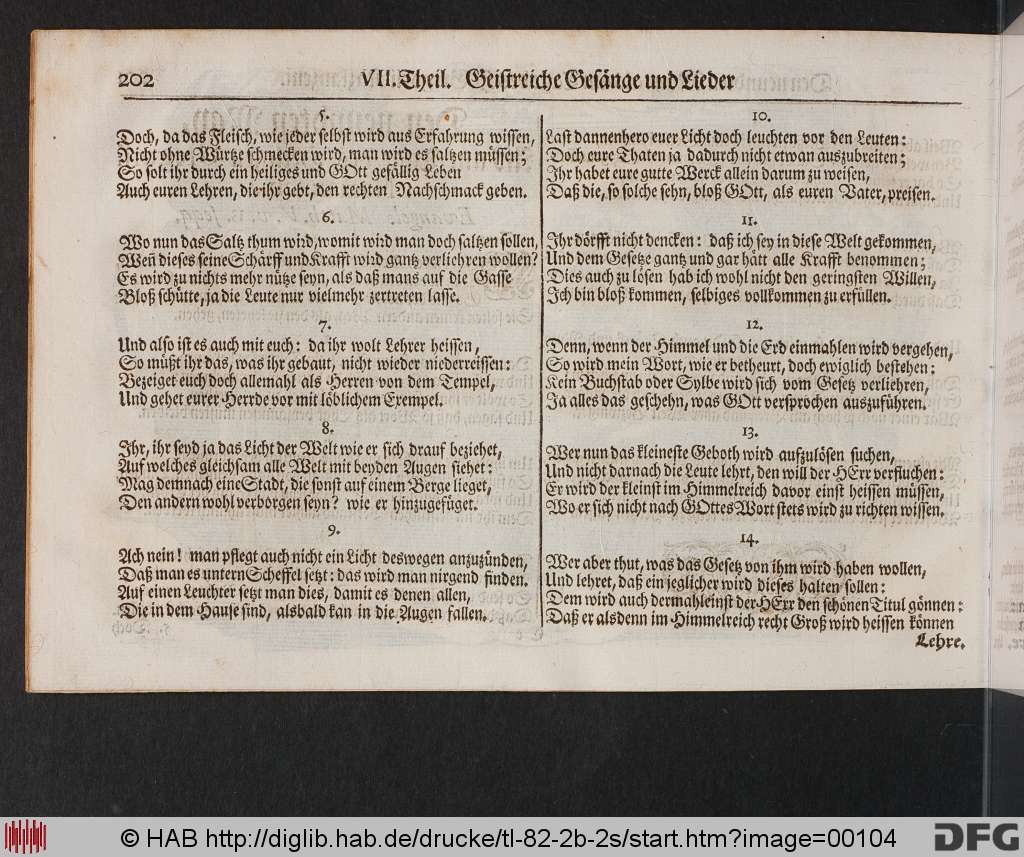 202
VII. Theil. Geistreiche Gesänge und Lieder
5.
Doch, da das Fleisch, wie jeder selbst wird aus Erfahrung wissen,
Nicht ohne Würtze schmecken wird, man wird es saltzen müssen;
So solt ihr durch ein heiliges und GOtt gefällig Leben
Auch euren Lehren, die ihr gebt, den rechten Nachschmack geben.
6.
Wo nun das Saltz thum wird, womit wird man doch saltzen sollen,
Weñ dieses seine Schärff und Krafft wird gantz verliehren wollen?
Es wird zu nichts mehr nütze seyn, als daß mans auf die Gasse
Bloß schütte, ja die Leute nur vielmehr zertreten lasse.
7.
Und also ist es auch mit euch: da ihr wolt Lehrer heissen,
So müßt ihr das, was ihr gebaut, nicht wieder niederreissen:
Bezeiget euch doch allemahl als Herren von dem Tempel,
Und gehet eurer Herrde vor mit löblichem Exempel.
8.
Ihr, ihr seyd ja das Licht der Welt wie er sich drauf beziehet,
Auf welches gleichsam alle Welt mit beyden Augen siehet:
Mag demnach eine Stadt, die sonst auf einem Berge lieget,
Den andern wohl verborgen seyn? wie er hinzugefüget.
9.
Ach nein! man pflegt auch nicht ein Licht deswegen anzuzünden,
Daß man es untern Scheffel setzt: das wird man nirgend finden.
Auf einen Leuchter setzt man dies, damit es denen allen,
Die in dem Hause sind, alsbald kan in die Augen fallen.
10.
Last dannenhero euer Licht doch leuchten vor den Leuten:
Doch eure Thaten ja dadurch nicht etwan auszubreiten;
Ihr habet eure gutte Werck allein darum zu weisen,
Daß die, so solche sehn, bloß GOtt, als euren Vater, preisen.
11.
Ihr dörfft nicht dencken: daß ich sey in diese Welt gekommen,
Und dem Gesetze gantz und gar hätt alle Krafft benommen;
Dies auch zu lösen hab ich wohl nicht den geringsten Willen,
Ich bin bloß kommen, selbiges vollkommen zu erfüllen.
12.
Denn, wenn der Himmel und die Erd einmahlen wird vergehen,
So wird mein Wort, wie er betheurt, doch ewiglich bestehen:
Kein Buchstab oder Sylbe wird sich vom Gesetz verliehren,
Ja alles das geschehn, was GOtt versprochen auszuführen.
13.
Wer nun das kleineste Geboth wird aufzulösen suchen,
Und nicht darnach die Leute lehrt, den will der HErr verfluchen:
Er wird der kleinst im Himmelreich davor einst heissen müssen,
Wo er sich nicht nach GOttes Wort stets wird zu richten wissen.
14.
Wer aber thut, was das Gesetz von ihm wird haben wollen,
Und lehret, daß ein jeglicher wird dieses halten sollen:
Dem wird auch dermahleinst der HErr den schönen Titul gönnen:
Daß er alsdenn im Himmelreich recht Groß wird heissen können
Lehre.
© HAB http://diglib.hab.de/drucke/tl-82-2b-2s/start.htm?image=00104
DFG